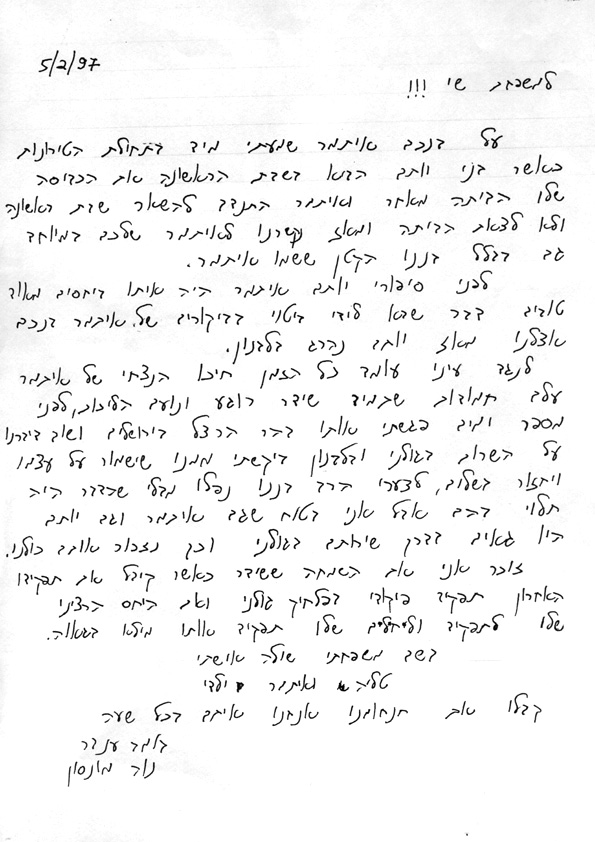 5/2/97
למשפחת שי !!!
על בנכם איתמר שמעתי מיד בתחילת הטירונות
כאשר בני יותם הבא בשבת הראשונה את הכביסה
שלו הביתה מאחר ואיתמר התנדב להשאר שבת ראשונה
ולא לצאת הביתה ומאז קשרנו לאיתמר שלכם במיוחד
גם בגלל בננו הקטן ששמו איתמר.
לפני סיפורי יותם איתמר היה איתו ביחסים מאוד
טובים דבר שבא לידי ביטוי בביקורים של איתמר בנכם
אצלנו מאז יותם נהרג בלבנון.
לנגד עיני עומד כל הזמן חיוכו הנצחי של איתמר
עלם חמודות שתמיד שידר רוגע ונועם הליכות, לפני
מספר ימים פגשתי אותו בהר הרצל בירושלים ושוב דיברנו
על השרות בגולני ובלבנון ביקשתי ממנו שישמור על עצמו
ויחזור בשלום, לצערי הרב בננו נפלו מבלי שהדבר היה
תלוי בהם אבל אני בטוח שגם איתמר וגם יותם
היו גאים בדרך שירותם בגולני וכך נזכור אותם כולנו.
זוכר אני את השמחה ששידר כאשר קיבל את תפקידו
האחרון תפקיד פיקודי בפלחיק גולני ואת היחס הרציני
שלו לתפקיד ולחיילים שלו תפקיד אותו מילא בגאווה.
בשם משפחתי שולה אישתי
טליה ואיתמר ילדי
קבלו את תנחומנו אנחנו איתכם בכל שעה
תומר ענבר
נוה מונסון